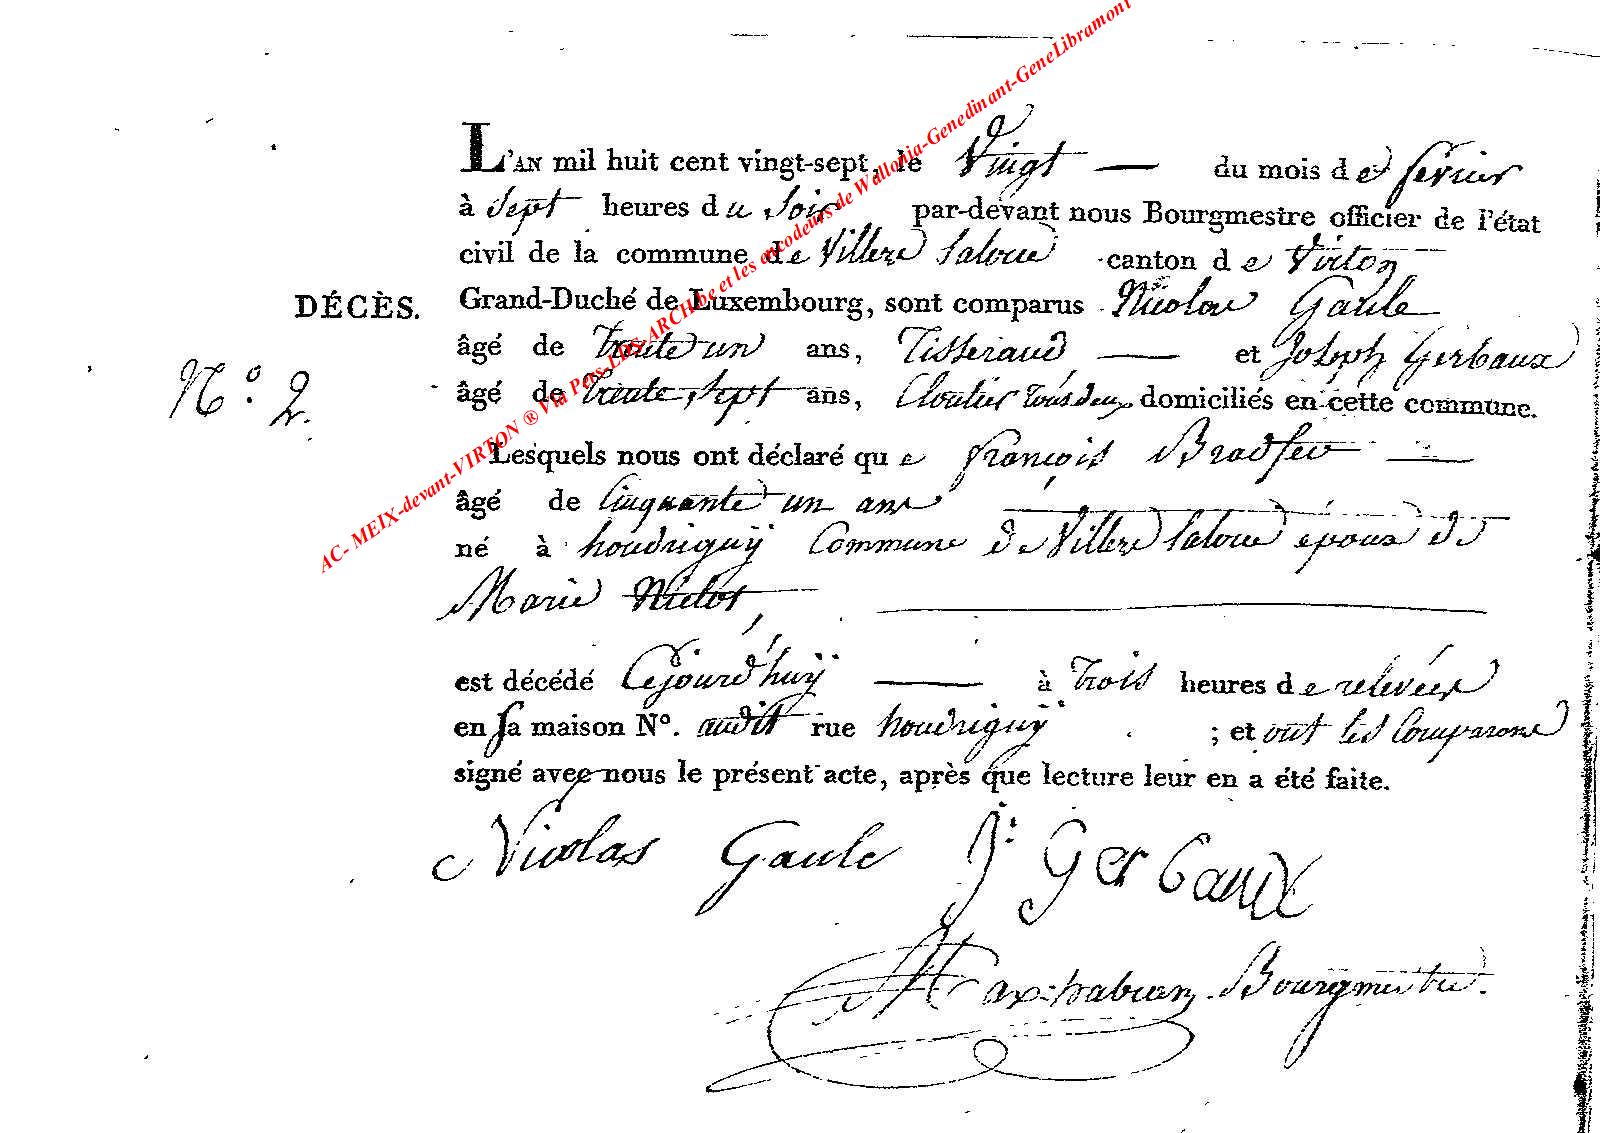 AC- MEIX-devant-VIRTON ® Via Pers-LDS-ARCH.be et les encodeurs de Wallonia-Genedinant-GeneLibramont
L'AN mil huit cent vingt-sept, le Vingt — du mois de février
à Sept heures du Soir par-devant nous Bourgmestre officier de l'état
civil de la commune de Villers Laloue canton de Virton
DÉCÈS. Grand-Duché de Luxembourg, sont comparus Nicolas Gaule
âgé de trente un ans, Tisserand — et Joseph Gerbaux
N.º 2. âgé de trente Sept ans, Cloutier tous deux domiciliés en cette commune.
Lesquels nous ont déclaré que françois Bradfer —
âgé de Cinquante un ans
né à houdriguÿ Commune de Villers Laloue époux de
Marie
est décédé Cejourd'huÿ — à trois heures de relevées
en sa maison Nº. audit rue houdriguÿ ; et ont les Comparans
signé avec nous le présent acte, après que lecture leur en a été faite.
Nicolas Gaule J: Gerbaux
Bourgmestre.